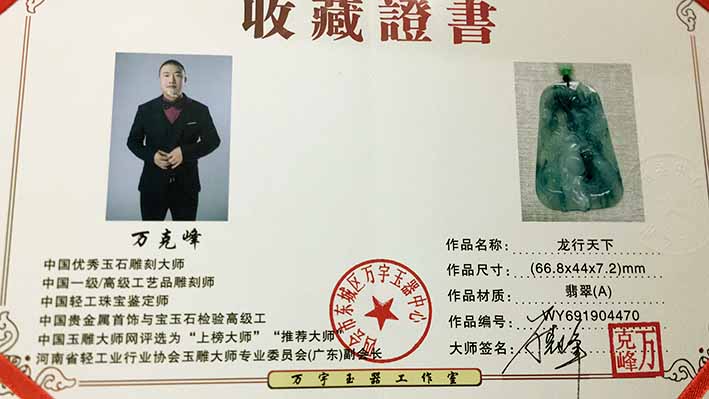 收藏證書
万克峰
中国优秀玉石雕刻大师
中国一级/高级工艺品雕刻师
中国轻工珠宝鉴定师
中国贵金属首饰与宝玉石检验高级工
中国玉雕大师网评选为“上榜大师”“推荐大师”
河南省轻工业行业协会玉雕大师专业委员会(广东)副会长
四会市东城区万宇玉器中心
作品名称: 龙行天下
作品尺寸: (66.8x44x7.2)mm
作品材质: 翡翠(A)
作品编号: WY691904470
大师签名:
万克峰
万宇玉器工作室